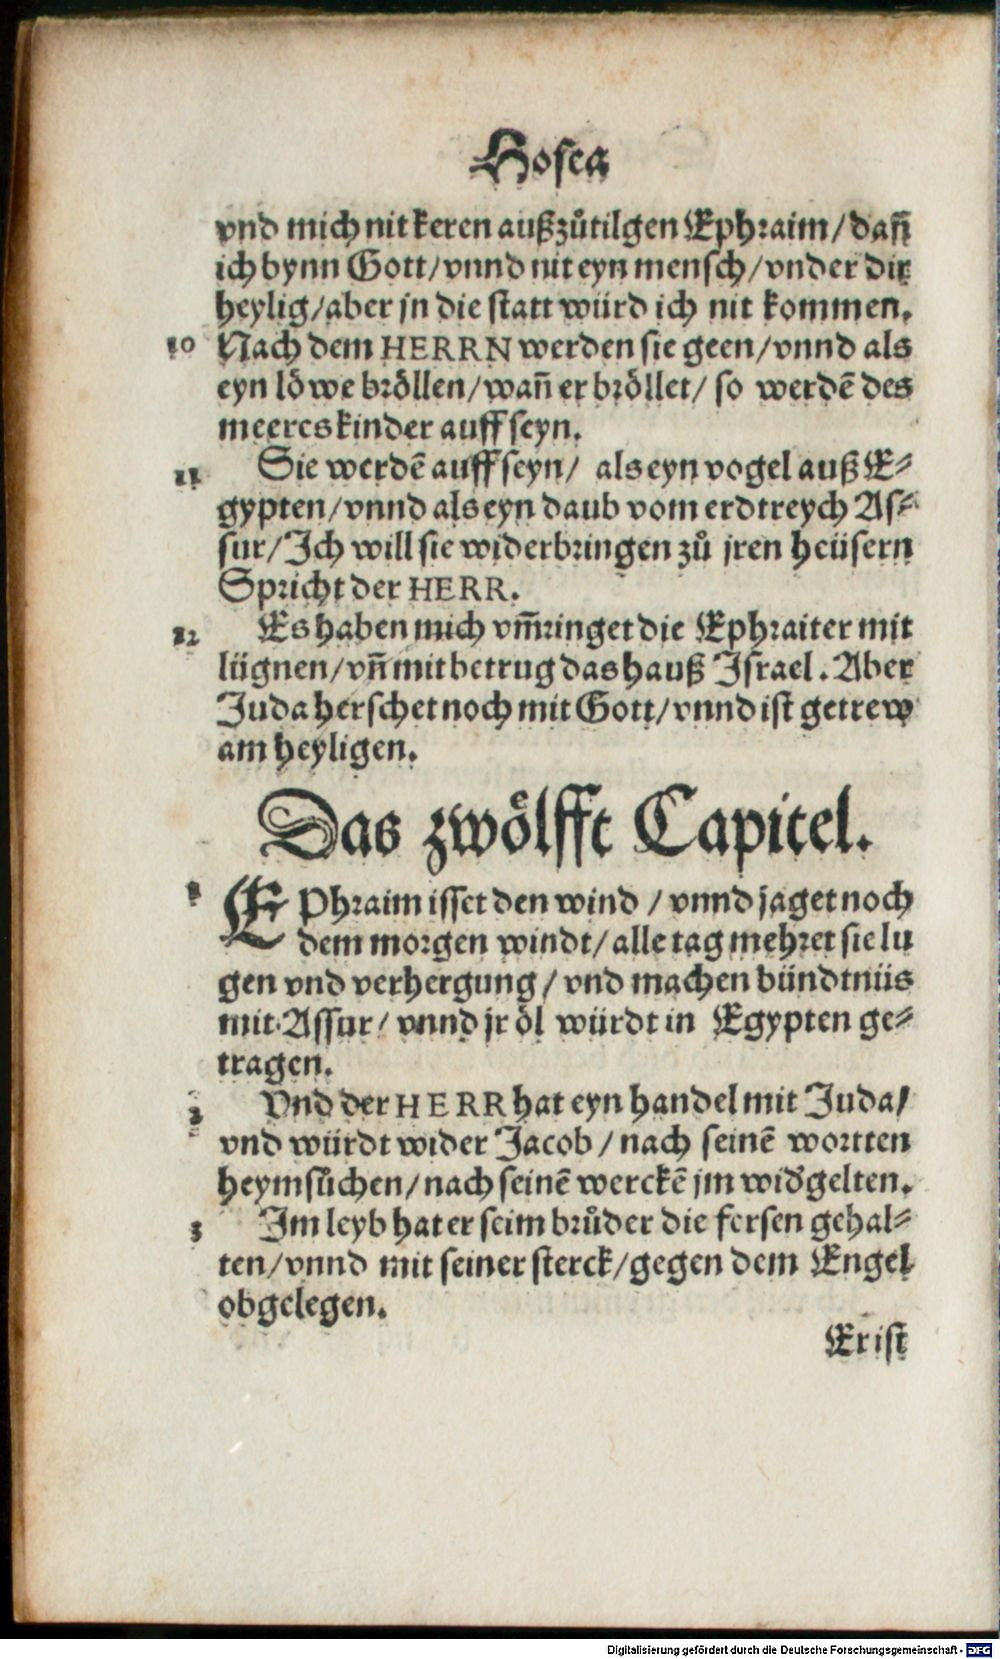 Hosea
vnd mich nit keren außzůtilgen Ephraim / dañ
ich bynn Gott / vnnd nit eyn mensch / vnder dir
heylig / aber jn die statt würd ich nit kommen.
10 Nach dem HERRN werden sie geen / vnnd als
eyn löwe bröllen / wañ er bröllet / so werdẽ des
meeres kinder auff seyn.
11 Sie werdẽ auff seyn / als eyn vogel auß E⸗
gypten / vnnd als eyn daub vom erdtreych As⸗
sur / Ich will sie widerbringen zů jren heüsern
Spricht der HERR.
12 Es haben mich vm̃ringet die Ephraiter mit
lügnen / vñ mit betrug das hauß Israel. Aber
Juda herschet noch mit Gott / vnnd ist getrew
am heyligen.
Das zwölfft Capitel.
1 EPhraim isset den wind / vnnd jaget noch
dem morgen windt / alle tag mehret sie lu
gen vnd verhergung / vnd machen bündtnüs
mit Assur / vnnd jr öl würdt in Egypten ge⸗
tragen.
2 Vnd der HERR hat eyn handel mit Juda /
vnd würdt wider Jacob / nach seinẽ wortten
heymsůchen / nach seinẽ werckẽ jm wid'gelten.
3 Im leyb hat er seim brůder die fersen gehal⸗
ten / vnnd mit seiner sterck / gegen dem Engel
obgelegen.
Er ist
Digitalisierung gefördert durch die Deutsche Forschungsgemeinschaft - DFG